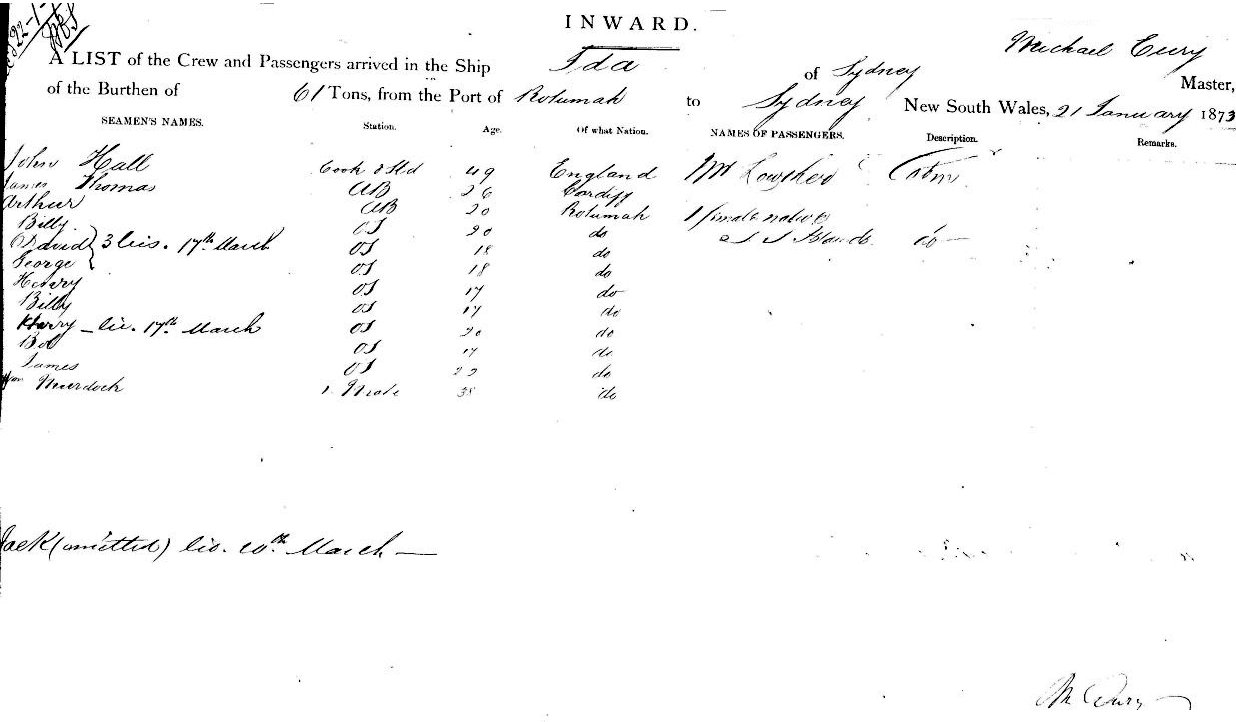 INWARD.
A LIST of the Crew and Passengers arrived in the Ship Ida of Sydney Michael Eury Master,
of the Burthen of 61 Tons, from the Port of Rotumah to Sydney New South Wales, 21 January 1873
SEAMEN'S NAMES. Station. Age. Of what Nation. NAMES OF PASSENGERS. Description. Remarks.
John Hall Cook & Std 49 England Mr Cabin
James Thomas AB 26 Cardiff
Arthur AB 20 Rotumah 1 female native
Billy OS 20 do of S S Islands do
David } 3 lic. 17th March OS 18 do
George OS 18 do
Henry OS 17 do
Billy OS 17 do
Harry - lic. 17th March OS 20 do
Bob OS 17 do
James OS 22 do
Wm Murdock Mate 38 do
Jack (omitted) lic. 20th March —
M Eury